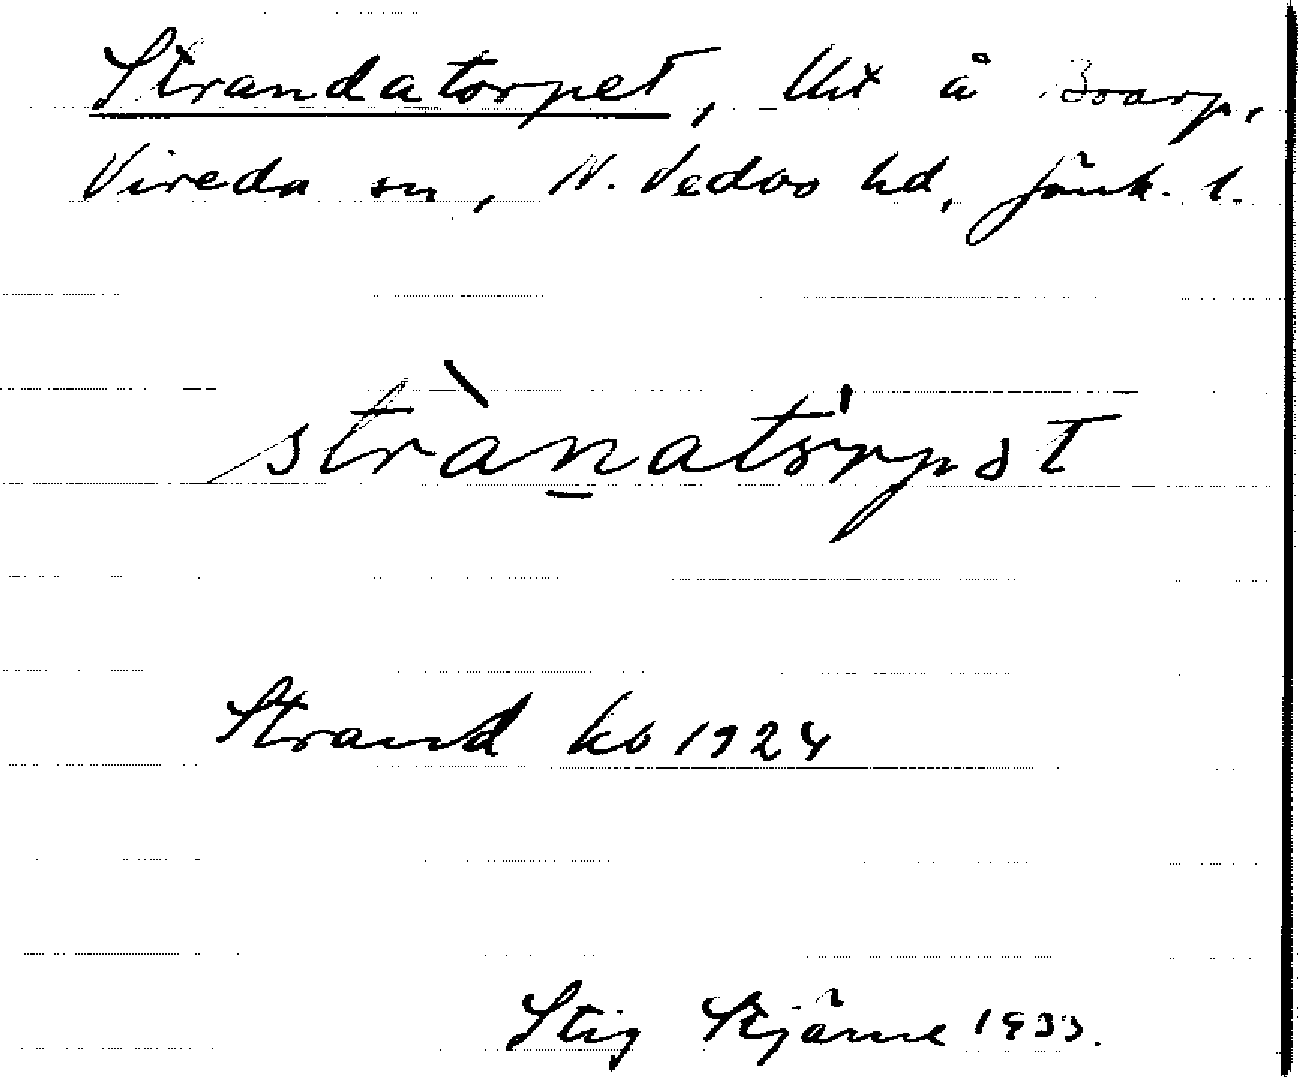 Strandatorpet, lht å Boarp,
Vireda sn, N. Vedbo hd, Jönk. l.
strànatòrpət
Strand kb 1924
Stig 1933.